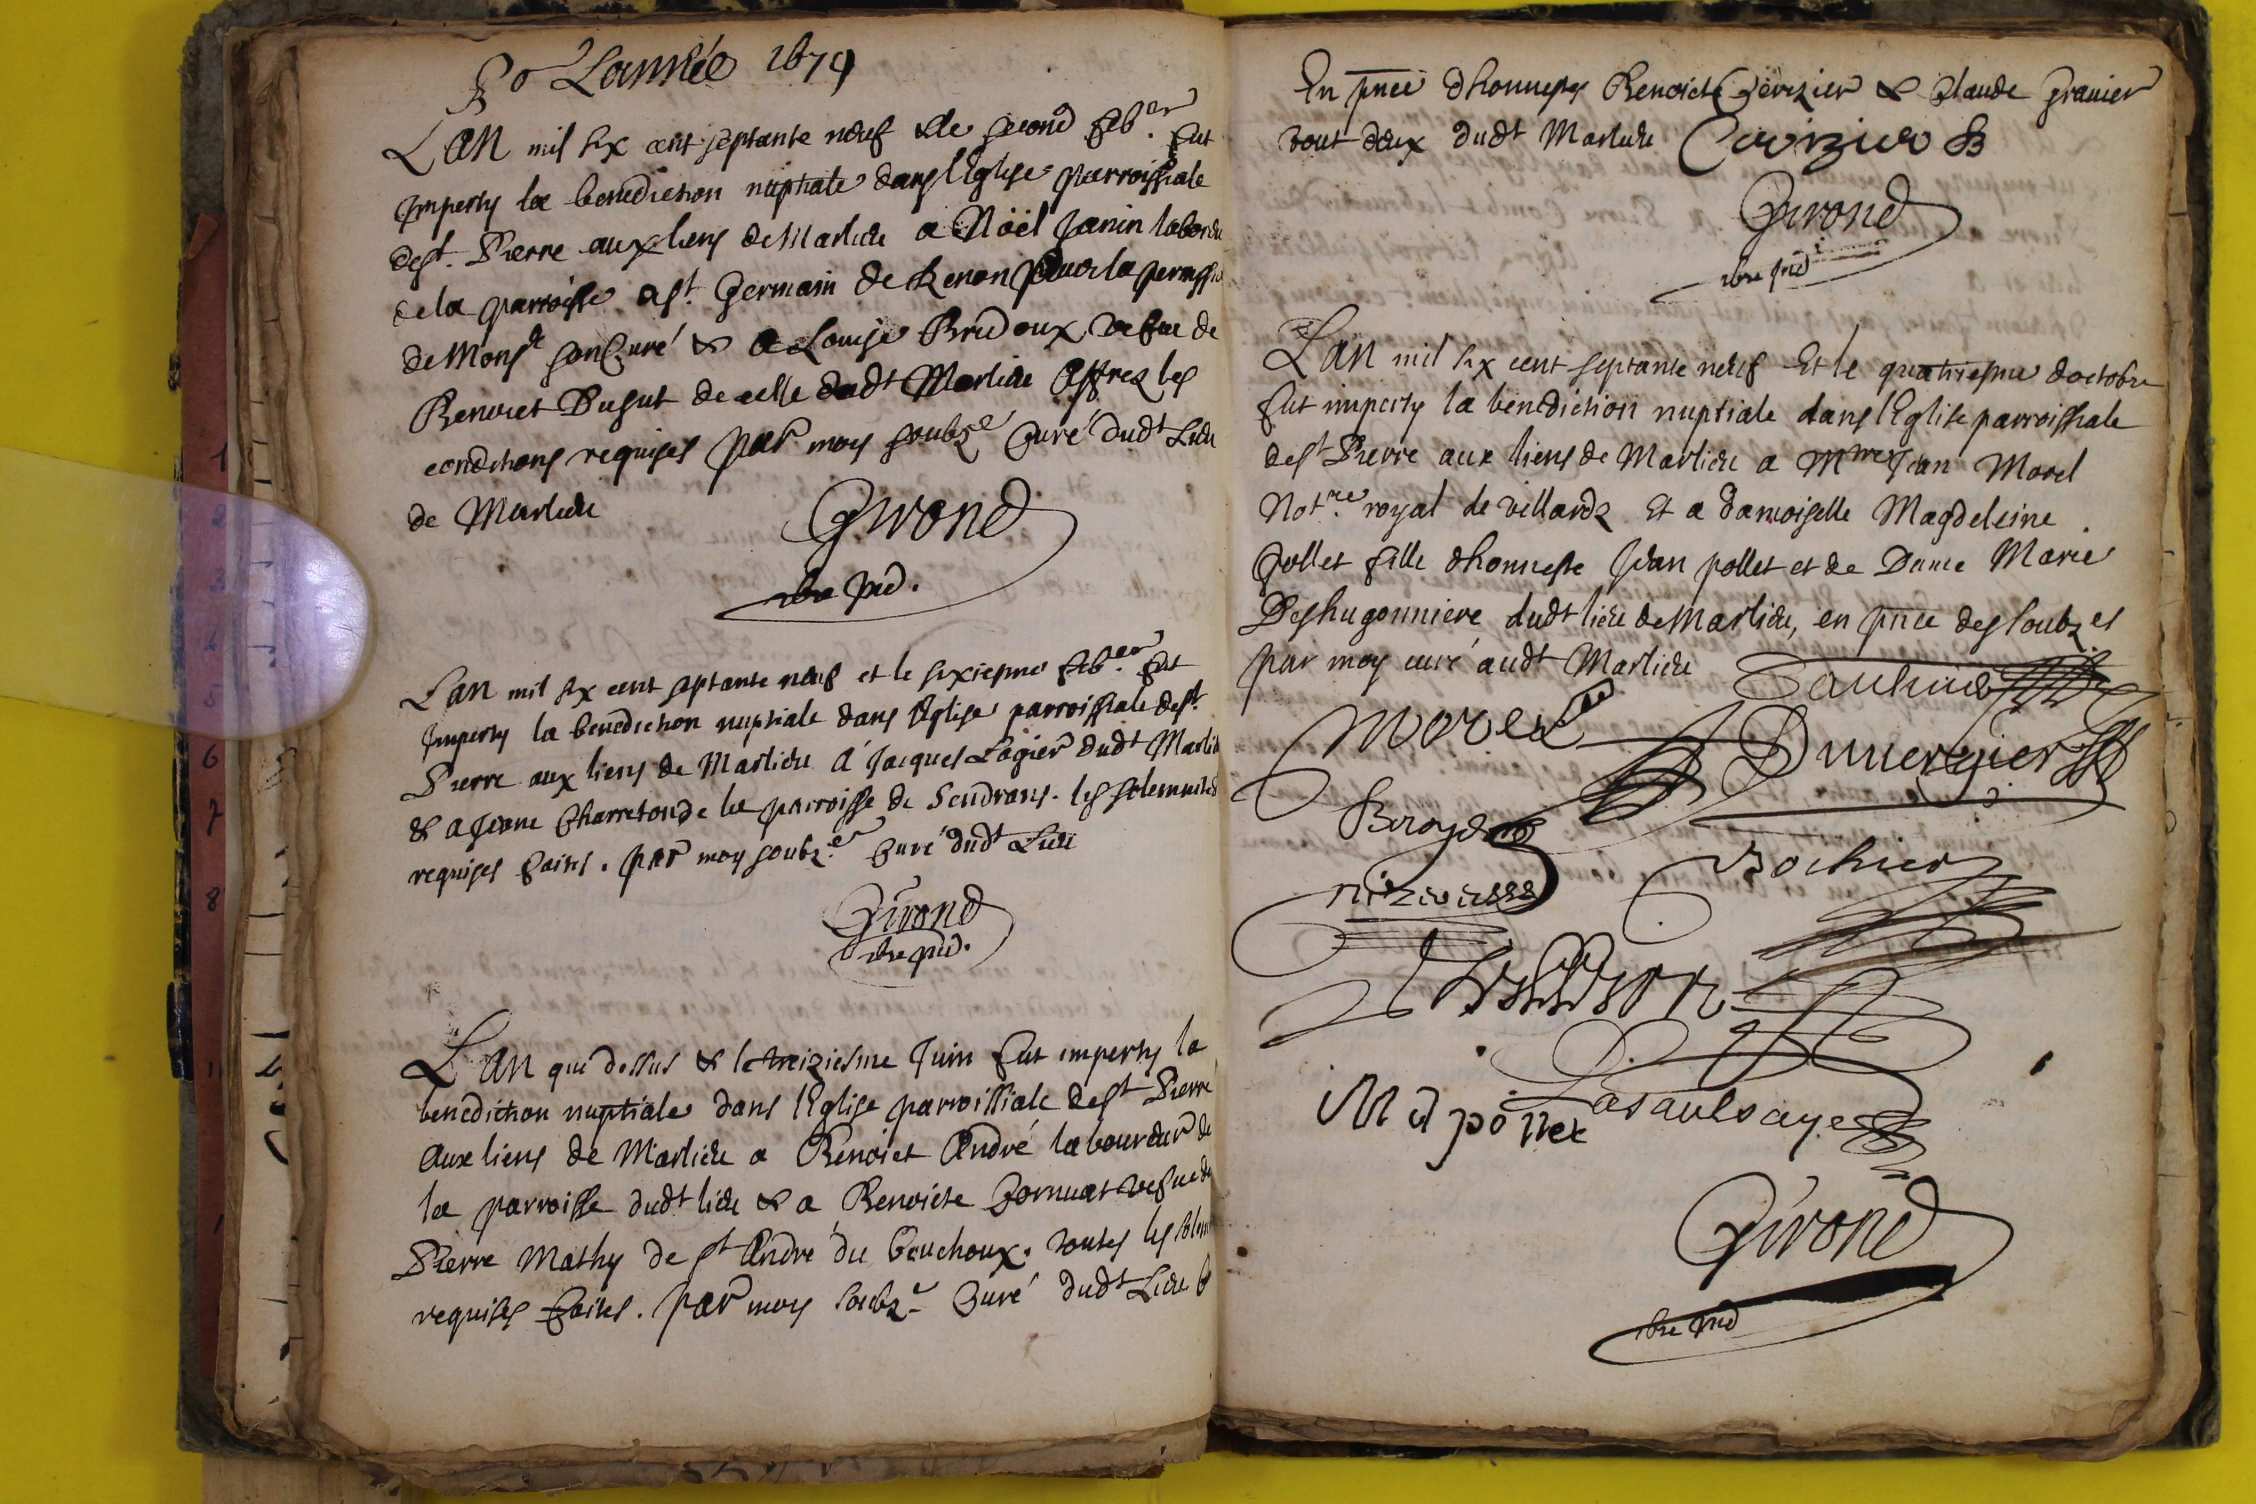 Po Lannée 1679
LAN mil six cent septante neuf & le second feb.er fut
imperty la benediction nuptiale dans l'Eglise parroissiale
de st. Pierre aux liens de Marlieu a Nöel Janin laboru
de la parroisse de st. Germain de Renon pour la permissio
de Monsr son Curé & a Louise Bridoux vefue de
Benoict Dufut de celle dudt Marlieu Apprez les
conditions requises par moy soubzé Curé dudt Lieu
de Marlieu
Girond
ptre
Lan mil six cent septante neuf et le sixiesme feb.er fut
Imperty la benediction nuptiale dans l'Eglise parroissiale de st.
Pierre aux liens de Marlieu á Jacques Logier dudt Marlieu
& a Jeane Charreton de la parroisse de Sendrans. les solemnites
requises faites. par moy soubz.e Curé dudt Lieu
Girond
ptre
L'AN que dessus & le treiziesme Juin fut imperty la
benediction nuptiale dans l'Eglise parroissiale de st Pierre
Aux liens de Marlieu a Benoict André laboureur de
la parroisse dudt lieu & a Benoicte Cornuat vefue de
Pierre Mathy de st André du Bouchoux. toutes les solem
requises faites. par moy soubz.e Curé dudt Lieu
En pnce dhonnestes Benoict Cerizier & Claude Granier
tout deux dudt Marlieu Cerizier B
Girond
ptre
L'an mil six cent septante neuf Et le quatriesme doctobre
fut imperty la benediction nuptiale dans l'Eglise parroissiale
de st Pierre aux liens de Marlieu a Mre Jean Morel
Not.re royal de villardz Et a damoiselle Magdeleine
Pollet fille dhonneste Jean pollet et de Dame Marie
Deshugonniere dudt lieu de Marlieu, en pnce des soubz es
par moy curé audt Marlieu
Morel
Duuergier
Rochier
M d pollet
Lasaulsaye
Girond
ptre